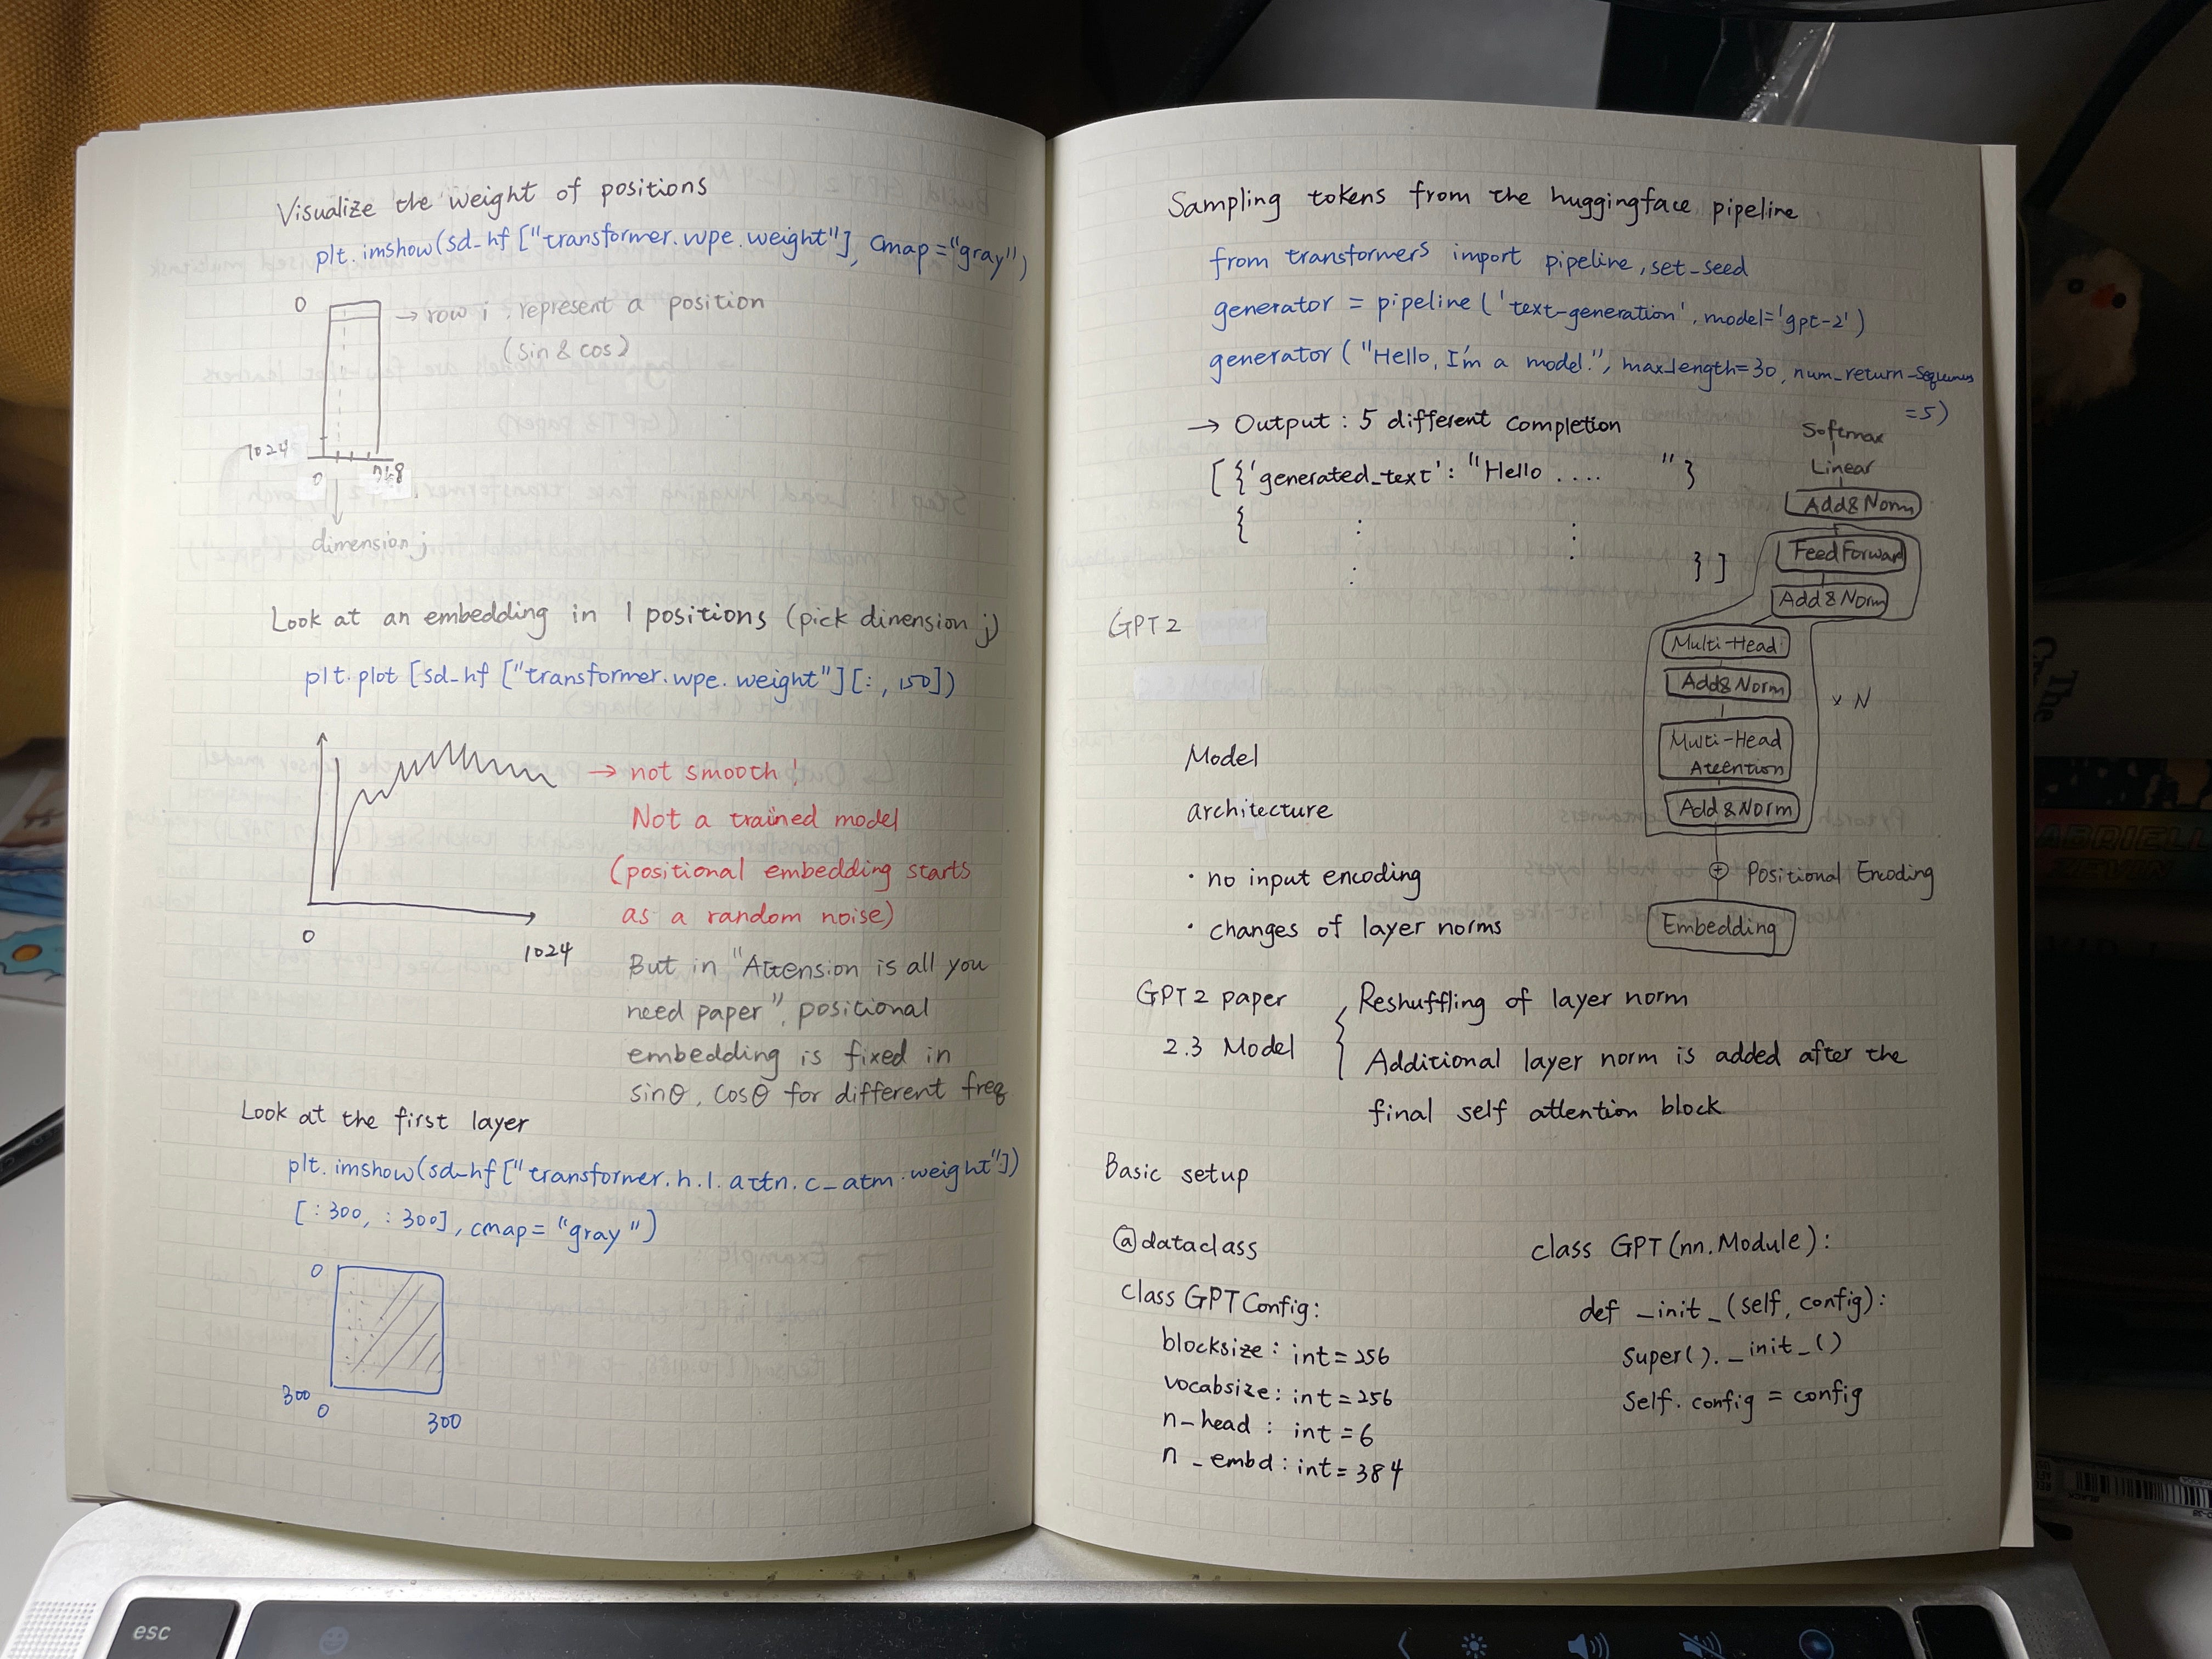 Visualize the weight of positions
plt.imshow(sd_hf["transformer.wpe.weight"], cmap="gray")
0
→ row i, represent a position
(sin & cos)
1024
0
768
dimension j
Look at an embedding in 1 positions (pick dimension j)
plt.plot [sd_hf ["transformer.wpe.weight"][:, 150])
→ not smooth!
Not a trained model
(positional embedding starts
as a random noise)
0
1024
But in "Attension is all you
need paper", positional
embedding is fixed in
sinθ, cosθ for different freq
Look at the first layer
plt.imshow(sd_hf["transformer.h.1.attn.c_atm.weight"])
[:300, :300], cmap="gray")
0
300
0
300
Sampling tokens from the huggingface pipeline
from transformers import pipeline, set_seed
generator = pipeline('text-generation', model='gpt-2')
generator("Hello, I'm a model.", max_length=30, num_return_sequences
=5)
→ Output: 5 different completion
[{'generated_text': "Hello .... "}
{ :
:
}]
Softmax
Linear
Add&Norm
FeedForward
Add&Norm
Multi-Head
Add&Norm
× N
Multi-Head
Attention
Add&Norm
+ Positional Encoding
Embedding
GPT2
Model
architecture
· no input encoding
· changes of layer norms
GPT2 paper
2.3 Model
{ Reshuffling of layer norm
Additional layer norm is added after the
final self attention block
Basic setup
@dataclass
class GPTConfig:
blocksize: int=256
vocabsize: int=256
n_head: int=6
n_embd: int=384
class GPT(nn.Module):
def _init_(self, config):
super()._init_()
self.config = config
esc
The
ABRIELL
ZEVI